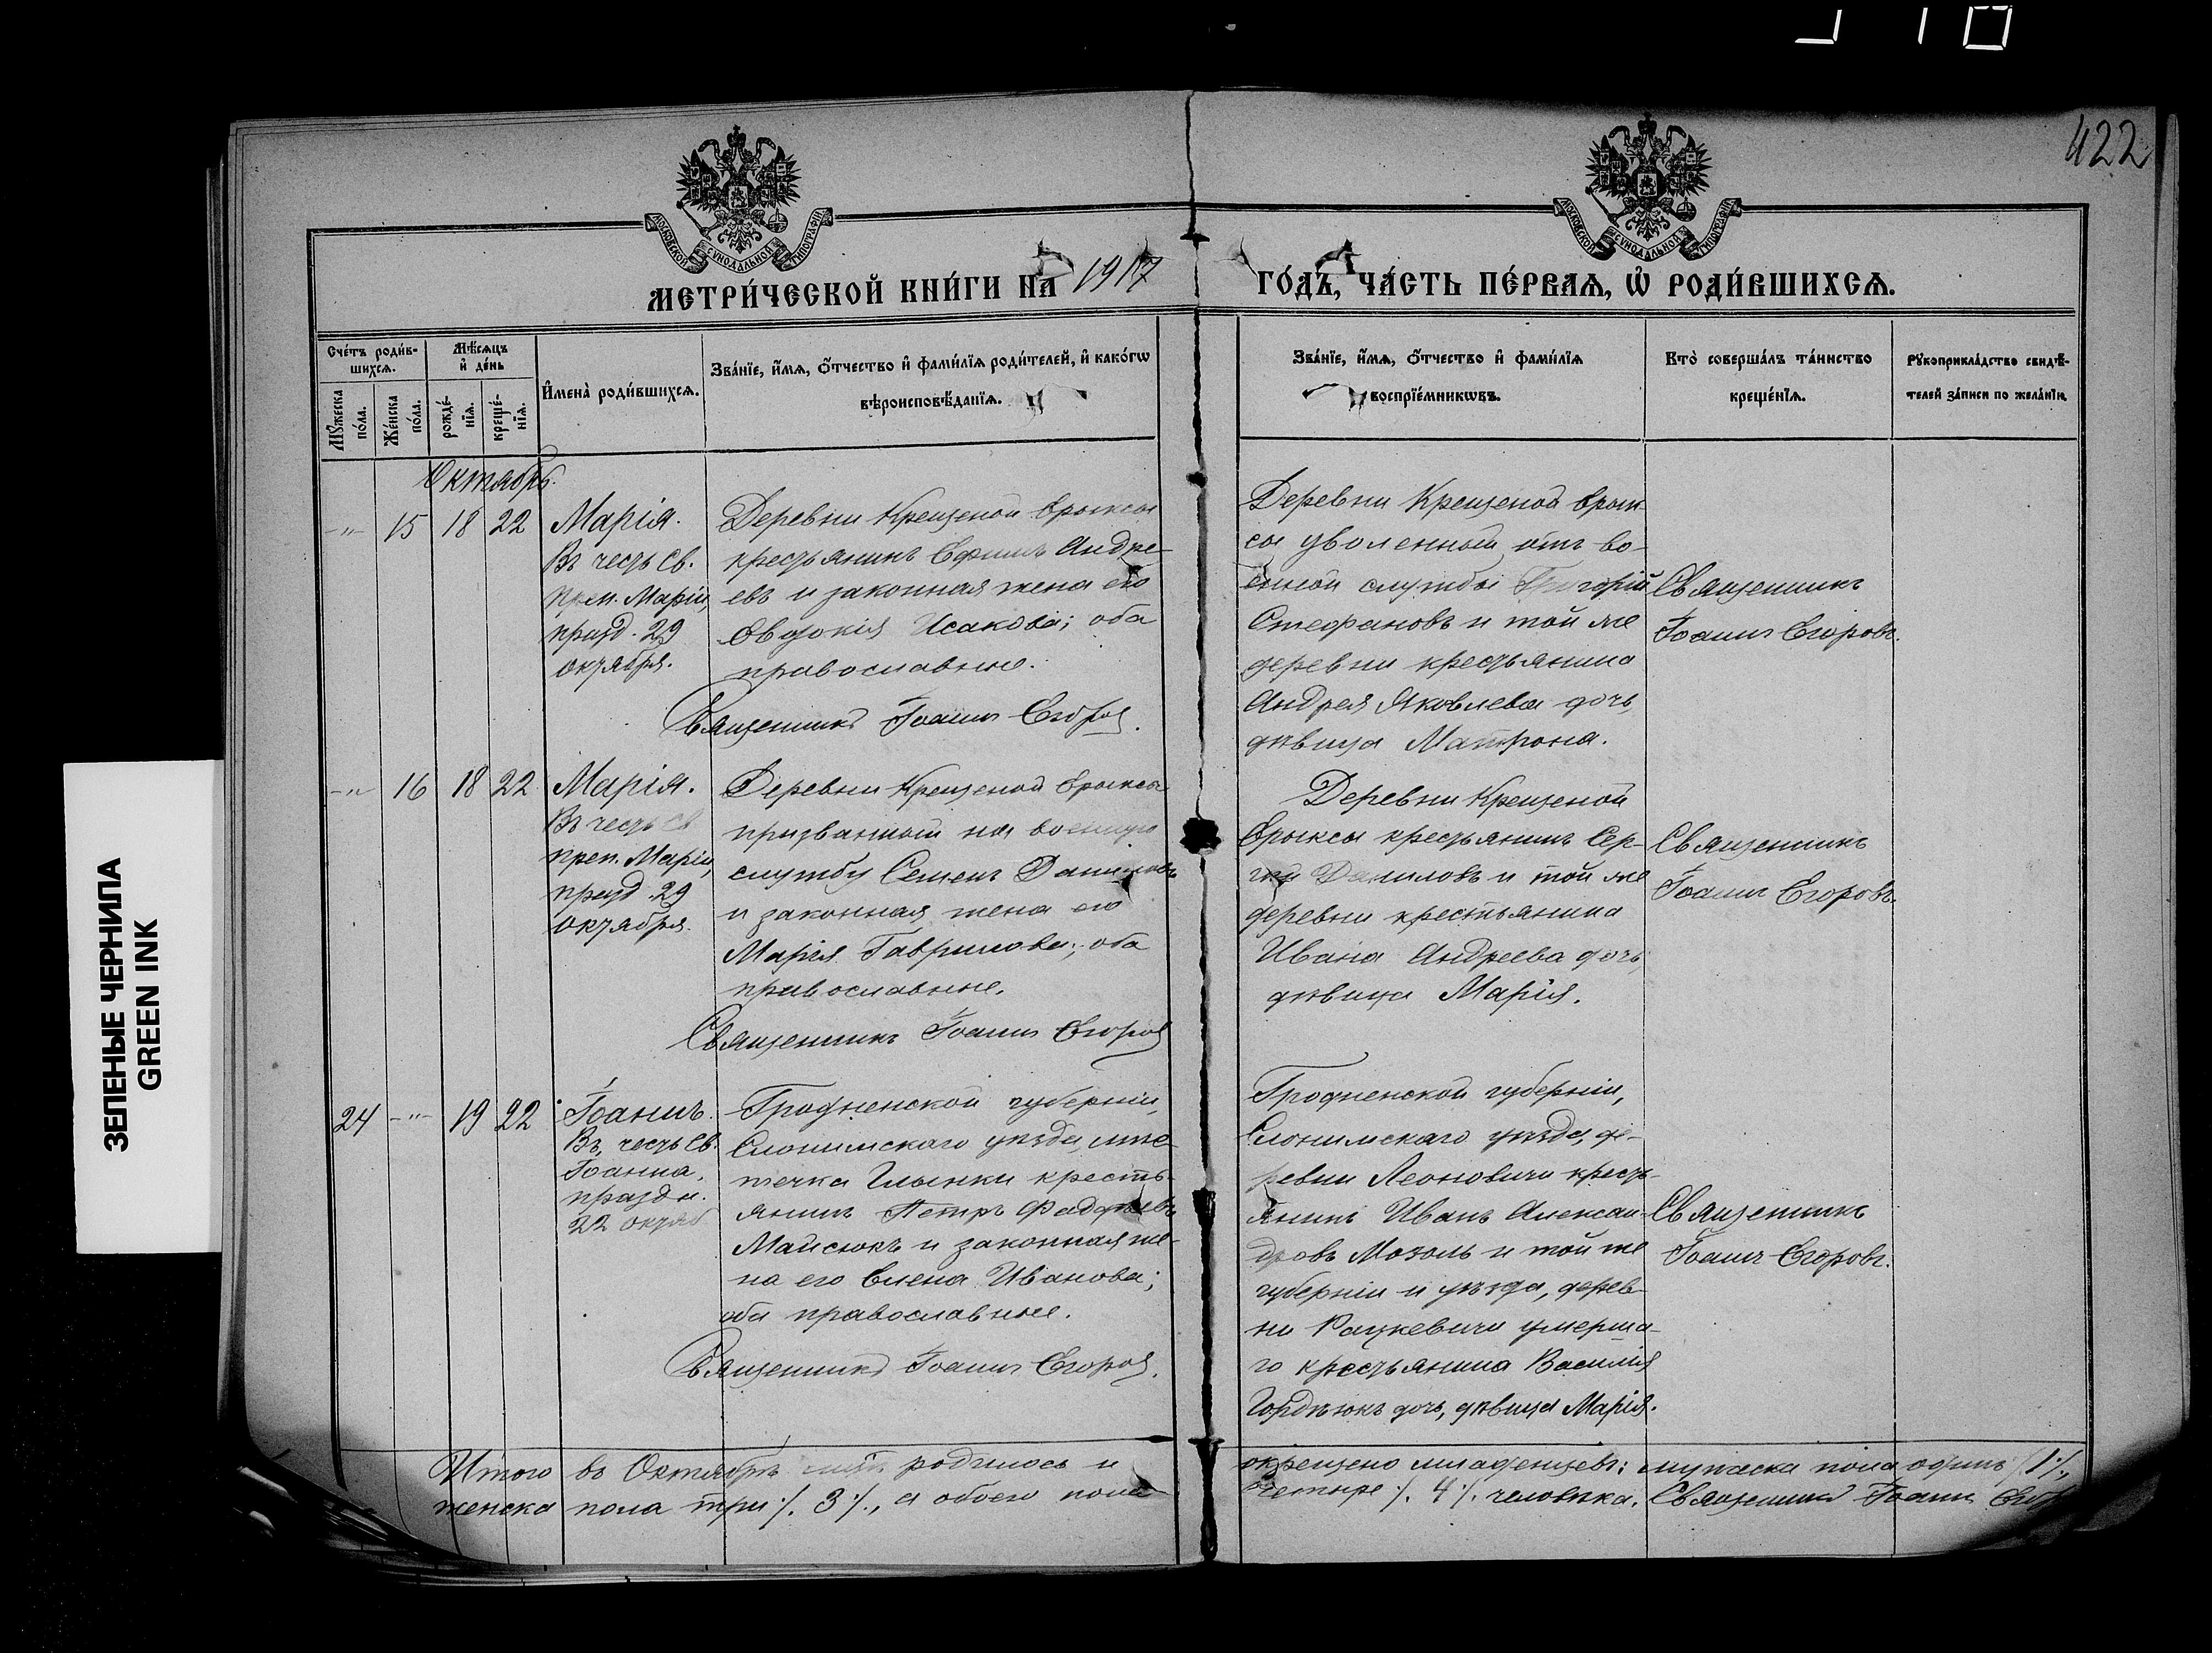 422
МОСКОВСКОЙ СѴНОДАЛЬНОЙ ТИПОГРАФІИ
МОСКОВСКОЙ СѴНОДАЛЬНОЙ ТИПОГРАФІИ
МЕТРИ́ЧЕСКОЙ КНИ́ГИ НА 1917 ГО́ДЪ, ЧА́СТЬ ПЕ́РВАѦ, Ѡ҆ РОДИ́ВШИХСѦ.
Сче́тъ роди́в-
шихсѧ.
Мꙋ́жеска по́ла.
Же́нска по́ла.
Мѣ́сѧцъ
и҆ де́нь
рожде́-
нїѧ.
креще́-
нїѧ.
И҆мена̀ роди́вшихсѧ.
Зва́нїе, и҆́мѧ, ѻ҆́тчество и҆ фами́лїѧ роди́телей, и҆ како́гѡ
вѣроисповѣ́данїѧ.
Зва́нїе, и҆́мѧ, ѻ҆́тчество и҆ фами́лїѧ
воспрїе́мникѡвъ.
Кто̀ соверша́лъ та́инство
креще́нїѧ.
Рꙋкоприкла́дство свидѣ́-
телей за́писи по жела́нїю.
Октябрь.
-"- 15 18 22 Марія.
Въ честь св.
преп. Маріи,
празд. 29
октября.
Деревни Крещеной Ерыксы
крестьянинъ Ефимъ Андре-
евъ и законная жена его
Евдокія Исакова; оба
православные.
Священникъ Іоаннъ Егоровъ.
Деревни Крещеной Ерык-
сы уволенный отъ во-
енной службы Григорій
Стефановъ и той же
деревни крестьянина
Андрея Яковлева дочь,
дѣвица Матрона.
Священникъ
Іоаннъ Егоровъ.
-"- 16 18 22 Марія.
Въ честь св
преп. Маріи,
празд. 29
октября.
Деревни Крещеной Ерыксы
призванный на военную
службу Семенъ Даниловъ
и законная жена его
Марія Гаврилова; оба
православные.
Священникъ Іоаннъ Егоровъ
Деревни Крещеной
Ерыксы крестьянинъ Сер-
гѣй Даниловъ и той же
деревни крестьянина
Ивана Андреева дочь,
дѣвица Марія.
Священникъ
Іоаннъ Егоровъ.
24 -"- 19 22 Іоаннъ.
Въ честь св.
Іоанна,
праздн.
22 октяб
Гродненской губерніи,
Слонимскаго уѣзда, мѣс-
течка крестъ-
янинъ Петръ Фаддѣевъ
Майсюкъ и законная же-
на его Елена Иванова;
оба православные.
Священникъ Іоаннъ Егоровъ.
Гродненской губерніи,
Слонимскаго уѣзда, де-
ревни Леоновичи кресть-
янинъ Иванъ Алексан-
дровъ Мозоль и той же
губерніи и уѣзда, дерев-
ни Рацкевичи умерша-
го крестьянина Василія
дочь, дѣвица Марія.
Священникъ
Іоаннъ Егоровъ.
Итого въ Октябрѣ родилось и окрещено младенцевъ: мужеска пола одинъ /1/.,
женска пола три /. 3 /., а обоего пола четыре /. 4 /. человѣка. Священникъ Іоаннъ
ЗЕЛЕНЫЕ ЧЕРНИЛА
GREEN INK